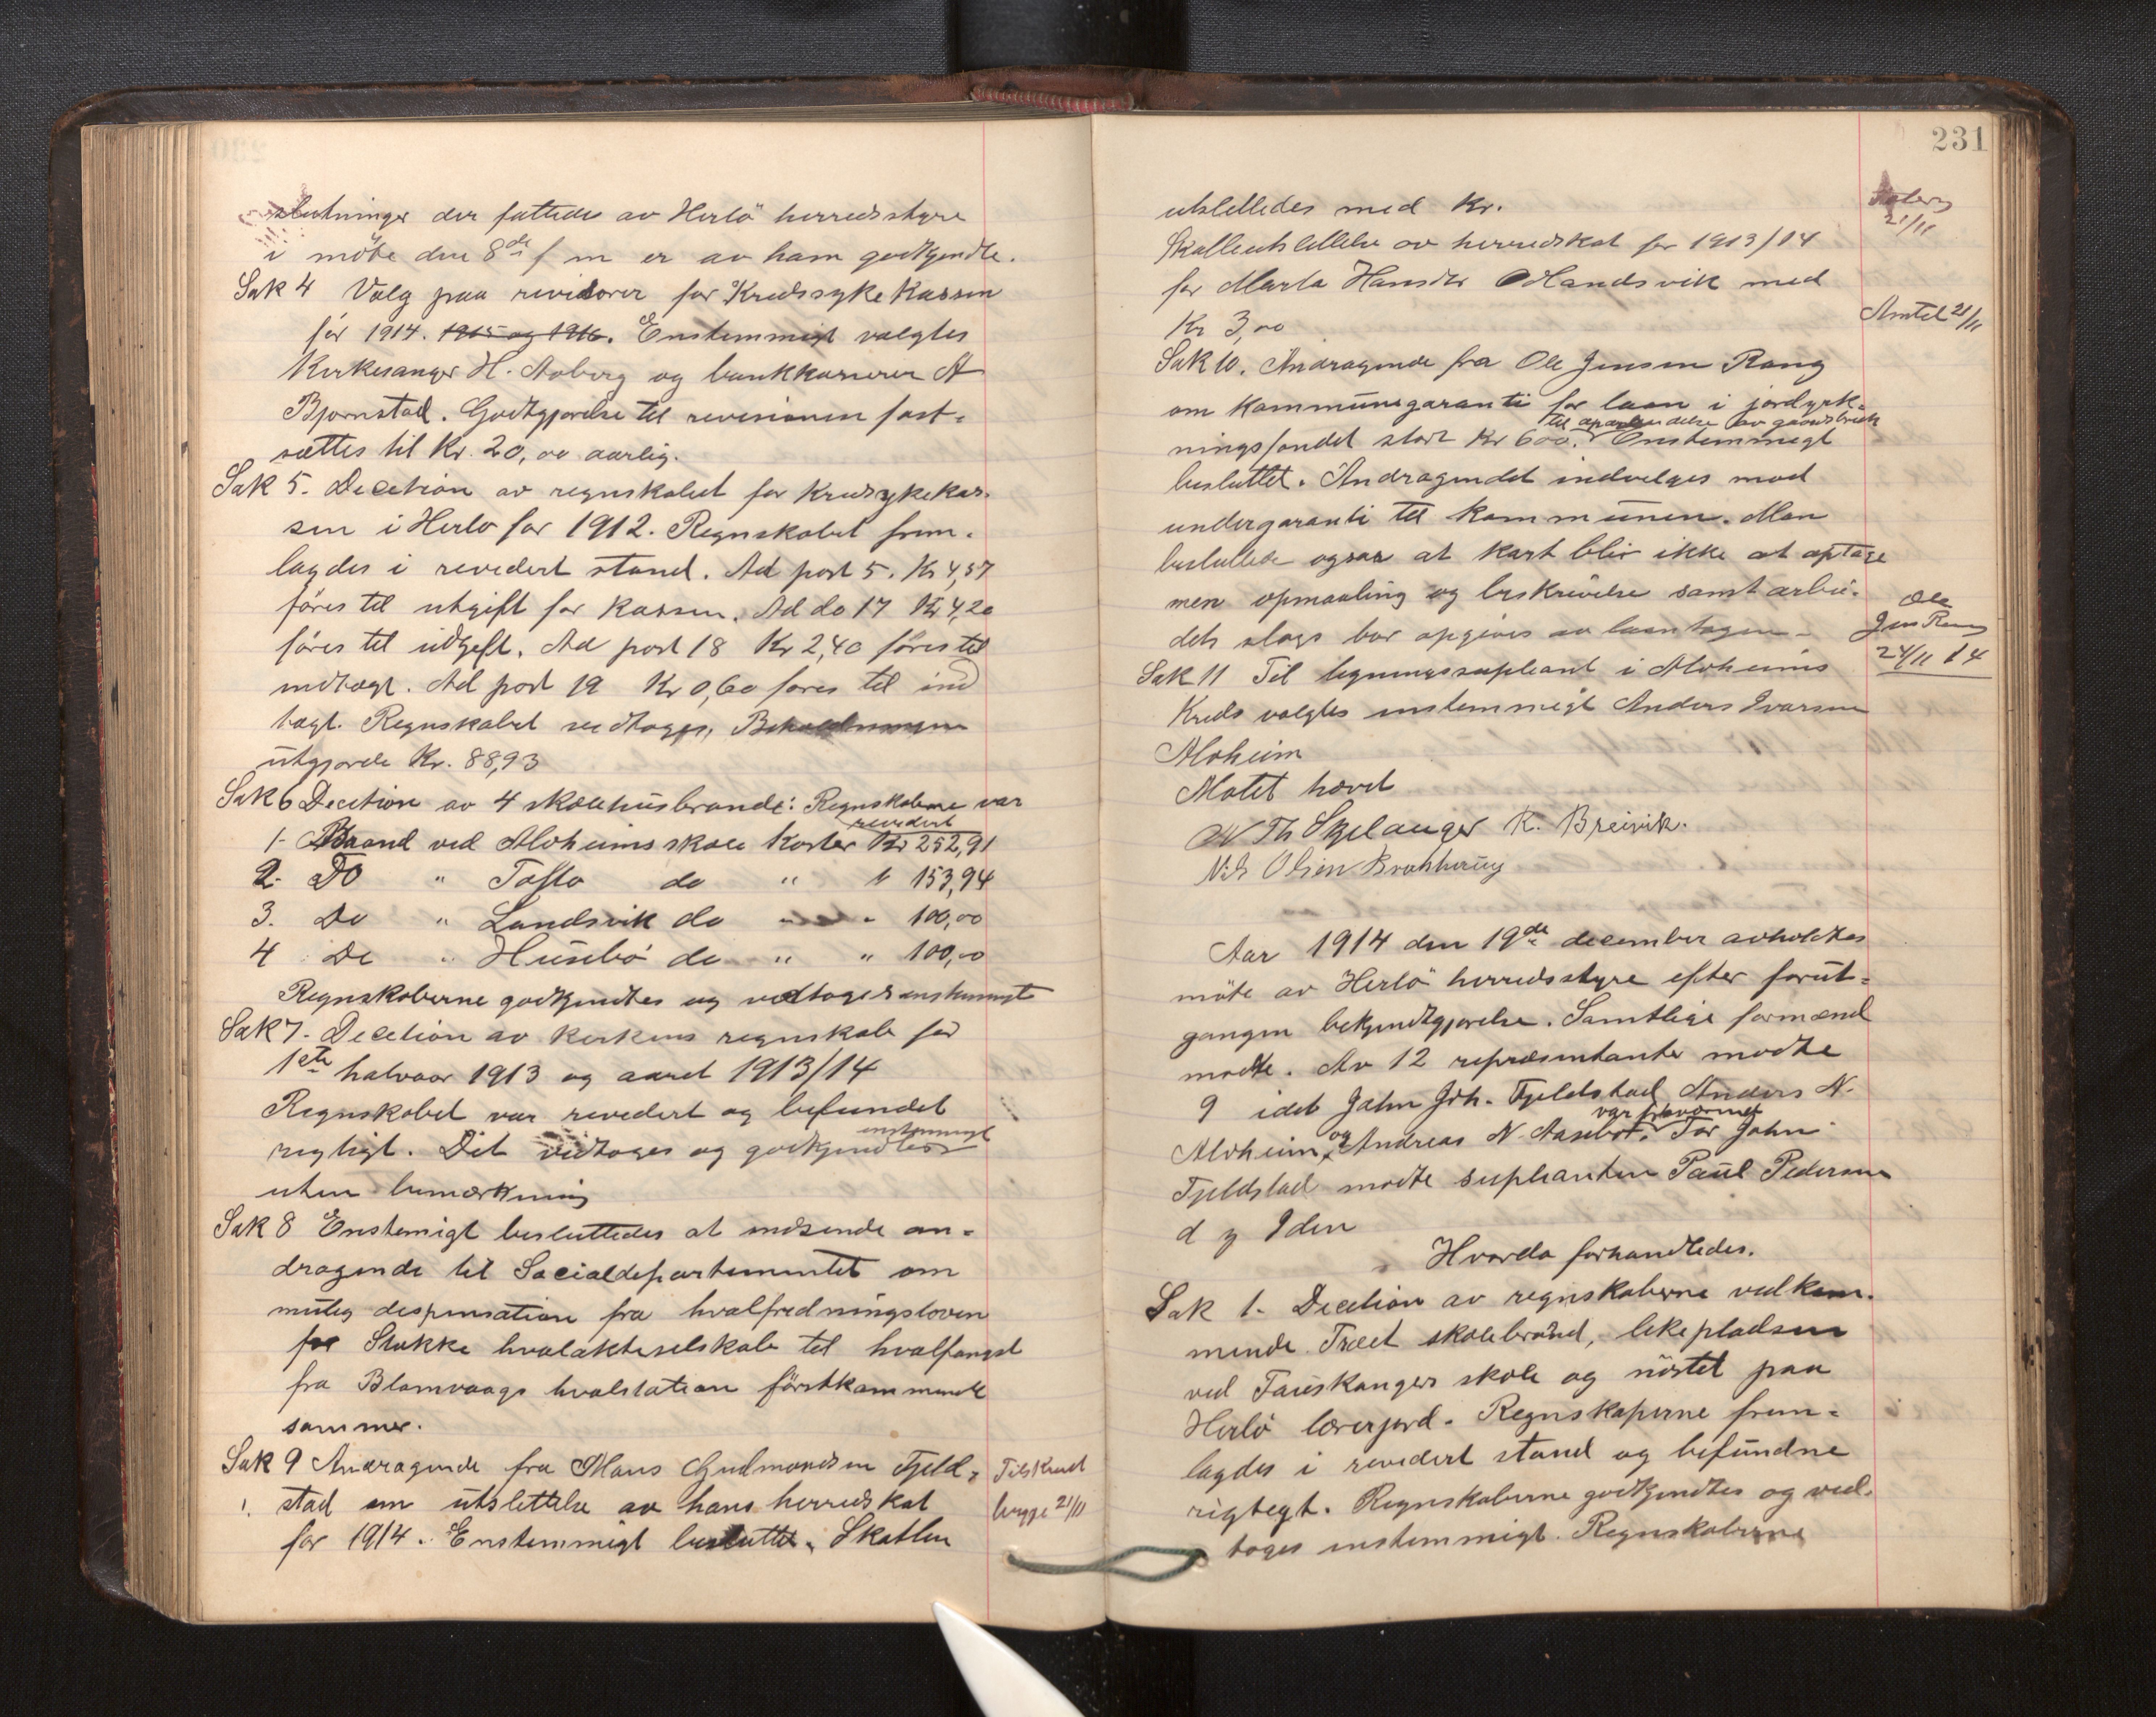 slutninger der fattedes av Herlö herredsstyre
i möte den 8de f m er av ham godkjendte.
Sak 4 Valg paa revisorer for Kredssykekassen
for 1914. 1915 og 1916. Enstemmigt valgtes
Kirkesanger H. Aaberg og bankkasserer A
Bjørnstad. Godtgjørelse til revisionen fast-
sættes til Kr. 20,00 aarlig.
Sak 5. Decition av regnskabet for Kredssykekas-
sen i Herlo for 1912. Regnskabet frem-
lagdes i revedert stand. Ad post 5. Kr 4,57
föres til utgift for kassen. Ad do 17 Kr 4,20
föres til udgift. Ad post 18 Kr 2,40 föres til
indtægt. Ad post 19 Kr 0,60 föres til ind
tægt. Regnskabet vedtoges. Beholdningen
utgjorde Kr. 88,93
Sak 6 Decition av 4 skolehusbrande: Regnskaberne var
revedert
1- Brand ved Alvheims skole koster Kr 252,91
2. Do " Tofto do " " 153,94
3. Do " Landsvik do " " 100,00
4 Do " Husebö do " " 100,00
Regnskaberne godkjendtes og vedtoges enstemmigt
Sak 7. Decition av kirkens regnskab for
1ste halvaar 1913 og aaret 1913/14
Regnskabet var revedert og befundet
enstemmigt
rigtigt. Det vedtoges og godkjendtes
uten bemærkning
Sak 8 Enstemigt besluttedes at indsende an-
dragende til Socialdepartementet om
mulig dispensation fra hvalfredningsloven
for Stokke hvalakteselskab til hvalfangst
fra Blomvaags hvalstation förstkommende
sommer.
Sak 9 Andragende fra Mons Gudmundsen Fjeld-
stad om utslettelse av hans herredskat
for 1914. Enstemmigt besluttet. Skatten
Tilskrevet
begge 21/11
231
utslettedes med Kr.
Skatteutslettelse av herredskat for 1913/14
for Marta Hansdtr Mandsvik med
Kr 3,00
21/11
Amtet 21/11
Sak 10. Andragende fra Ole Jensen Rong
om kommunegaranti for laan i jordyrk-
til oparbeidelse av gaardsbruk
ningsfondet stort Kr 600. Enstemmigt
besluttet. Andragendet indvelges mod
undergaranti til kommunen. Man
besluttede ogsaa at kart blir ikke at optage
men opmaaling og beskrivelse samt arbei-
dets slags bør opgives av laantagen-
Ole
Jens Rong
24/11 14
Sak 11 Til ligningssupleant i Alvheims
Kreds valgtes enstemmigt Anders Ivarsen
Alvheim
Møtet hævet
N Th Skjelanger K. Breivik.
Nils Olsen
Aar 1914 den 19de december avholdtes
möte av Herlö herredsstyre efter forut-
gangen bekjendtgjørelse. Samtlige formænd
mødte. Av 12 repræsentanter mødte
9 idet John Joh. Fjeldstad Anders N.
var fraværende
Alvheim, og Andreas N. Aasebø. For John
Fjeldstad mødte suplianten Paul Pedersen
d y Iden
Hvorda forhandledes.
Sak 1. Decition av regnskaberne vedkom-
mende Træet skolebrand, lekepladsen
ved Tauskanger skole og nöstet paa
Herlö lærerjord. Regnskaperne frem-
lagdes i revedert stand og befundne
rigtegt. Regnskaberne godkjendtes og ved-
toges enstemmigt. Regnskaberne